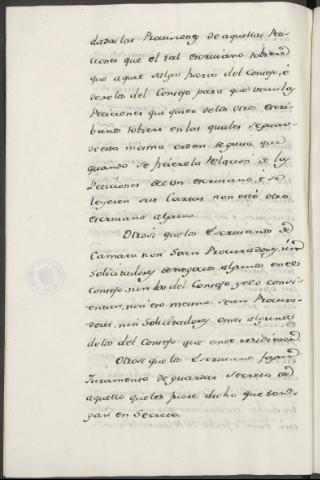 dadas las Provisiones de aquellas Peti-
ciones que el tal escrivano toviere
que aque salga fuera del Consejo, é
de velos del Consejo para que vean las
Peticiones que quier de los otros Escri-
banos toviere en las quales se guar-
de esta misma orden seguiva que
quando se ficiere la relacion de las
Peticiones de un escrivano, é se
leyeren sus Cartas non esté otro
escrivano alguno.
Otrosi que los Escrivanos de
Camara non sean Procuradores, nin
Solicitadores de negocio alguno en el
Consejo, nin los del Consejo gelo consi-
entan, nin eso mesmo sean Procura-
dores, nin Solicitadores omes algunos
de los del Consejo que en el residieren.
Otrosi que los Escrivanos fagan
Juramento de guardar secreto en
aquello que les fuere dicho que ten-
gan en Secreto.